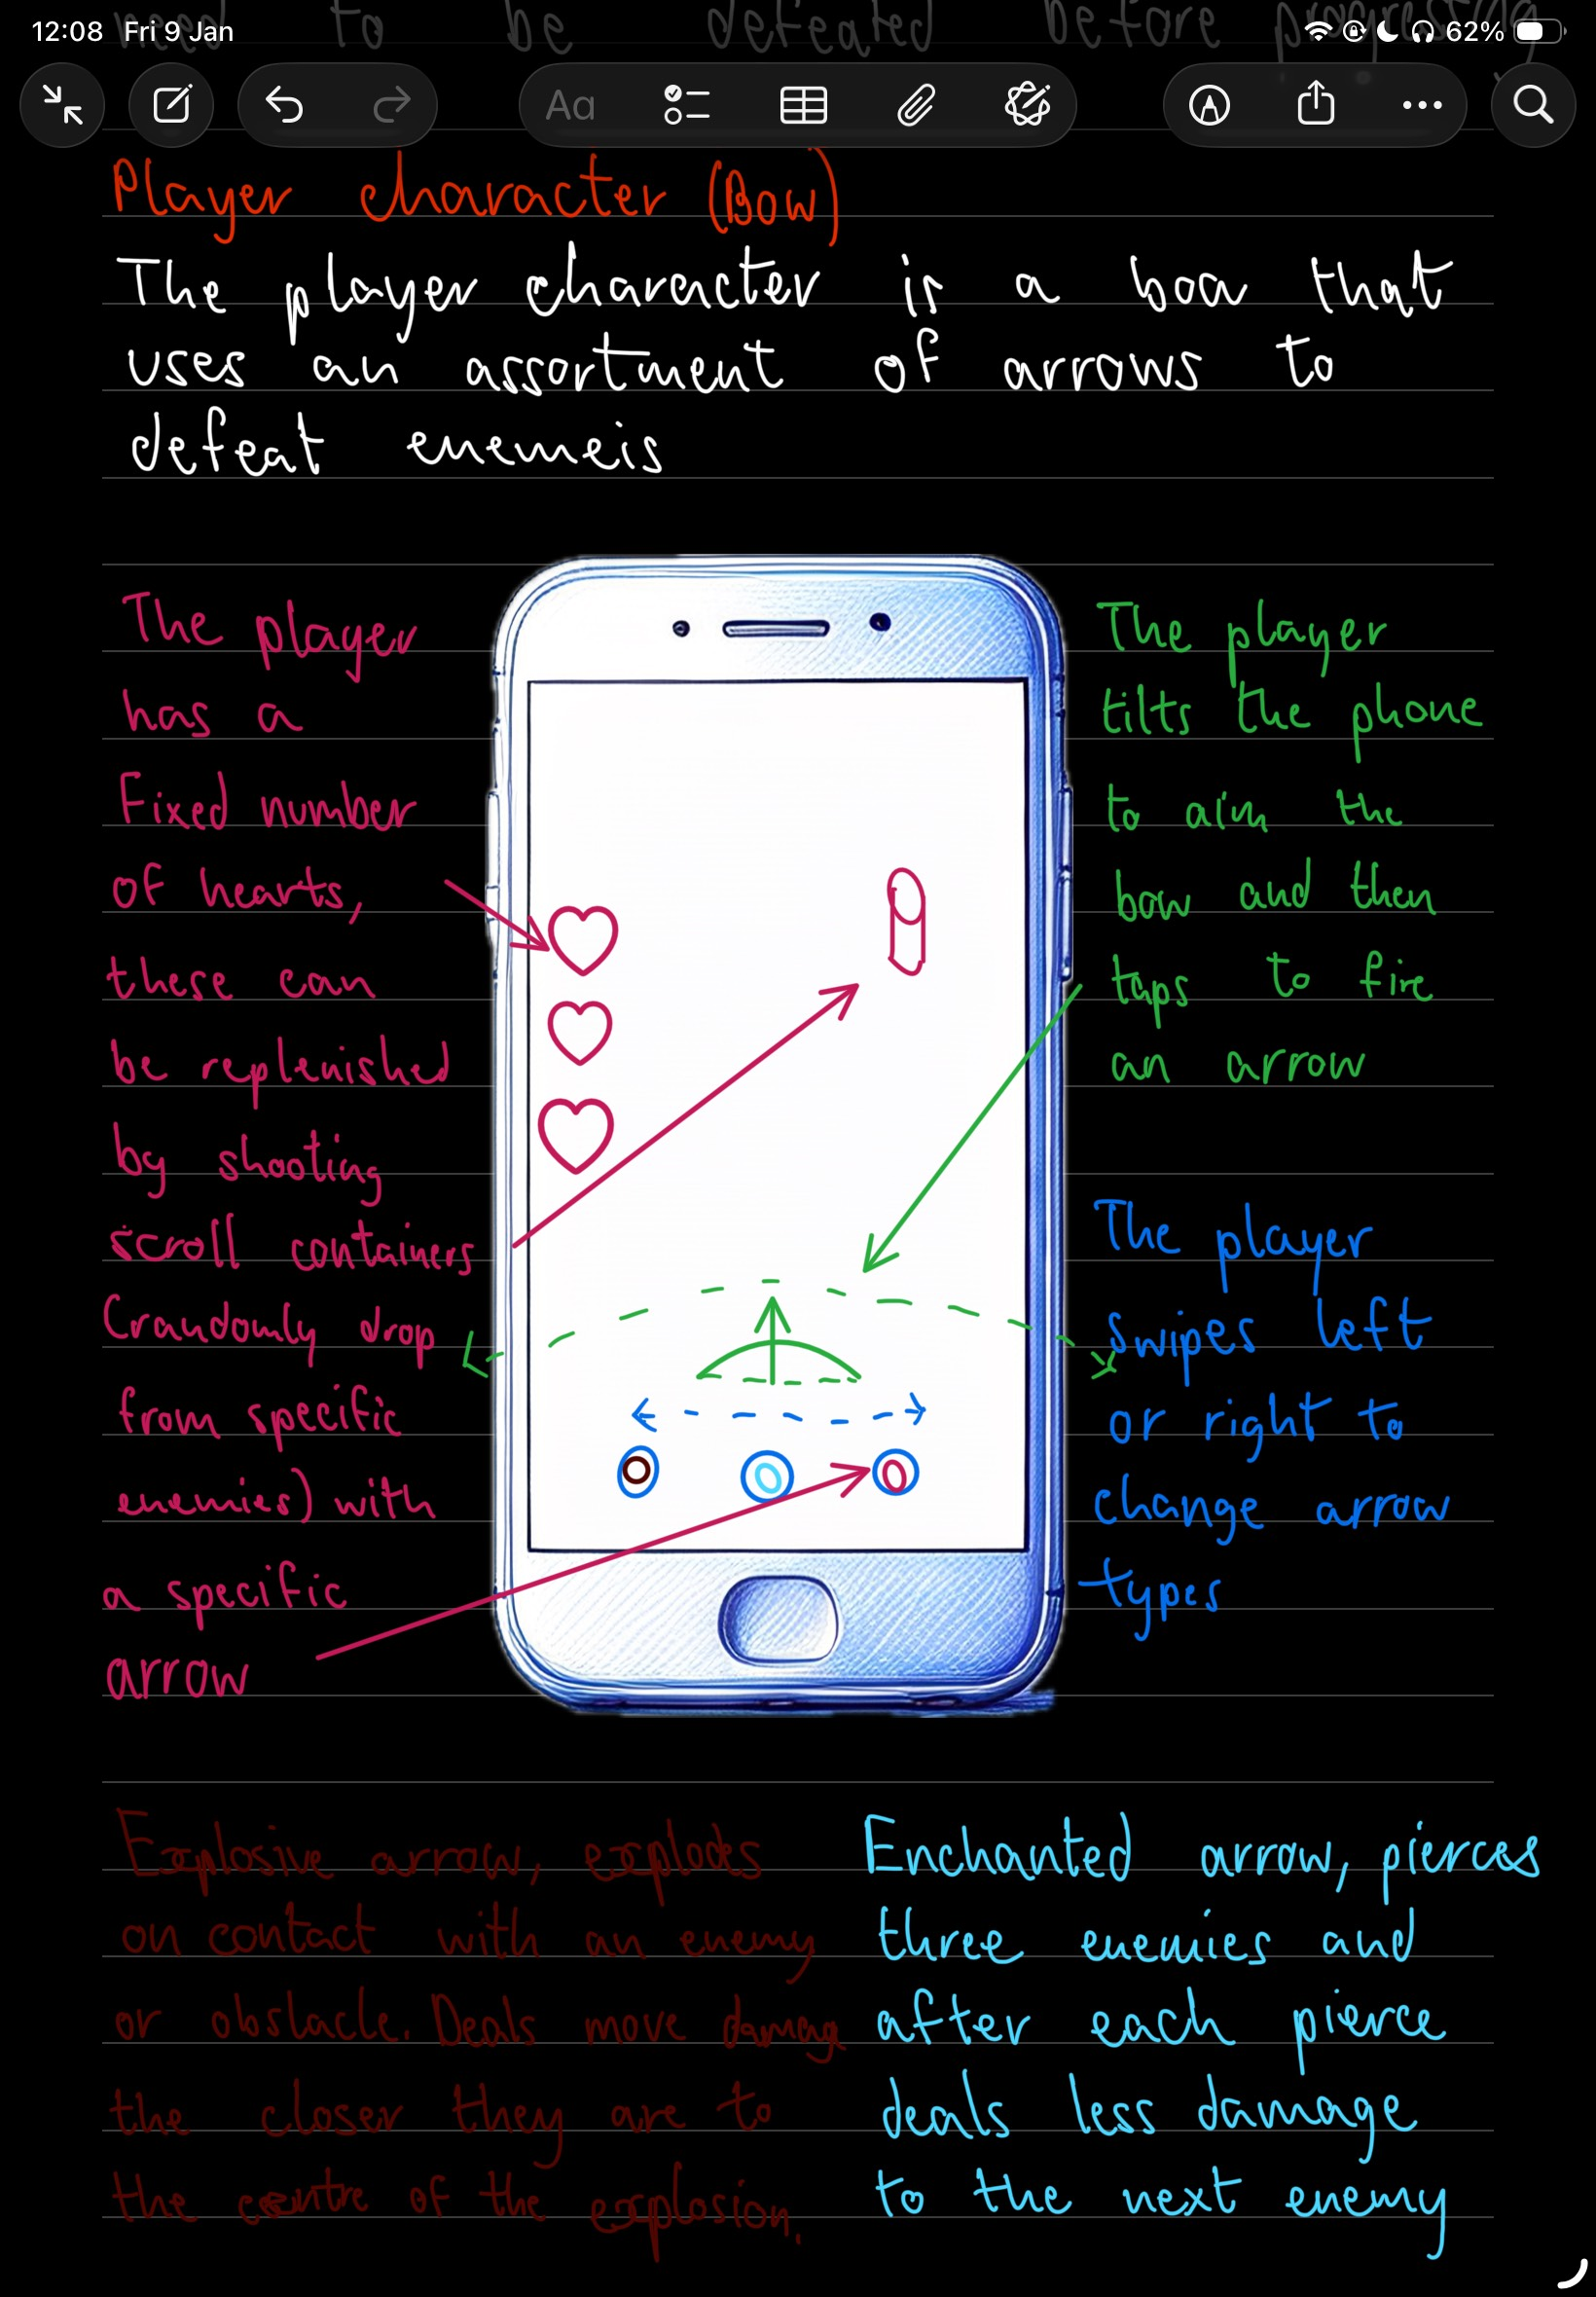 need to be defeated before progressing
12:08 Fri 9 Jan
62%
Aa
Player character (Bow)
The player character is a boa that
uses an assortment of arrows to
defeat enemeis
The player
has a
Fixed number
of hearts,
these can
be replenished
by shooting
scroll containers
(randomly drop
from specific
enemies) with
a specific
arrow
The player
tilts the phone
to aim the
bow and then
taps to fire
an arrow
The player
swipes left
or right to
change arrow
types
Explosive arrow, explodes
on contact with an enemy
or obstacle. Deals more damage
the closer they are to
the centre of the explosion.
Enchanted arrow, pierces
three enemies and
after each pierce
deals less damage
to the next enemy